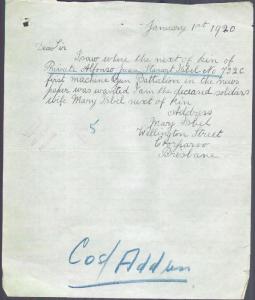 January 1st 1920
Dear Sir
I saw where the next of kin of
Private Alfonso Stewart Isbel No 732C
first machine Gun Battalion in the news
paper was wanted I am the deceased soldiers
wife Mary Isbel next of kin
Address
Mary Isbel
Wellington Street
Brisbane
5
Cos/ Addres